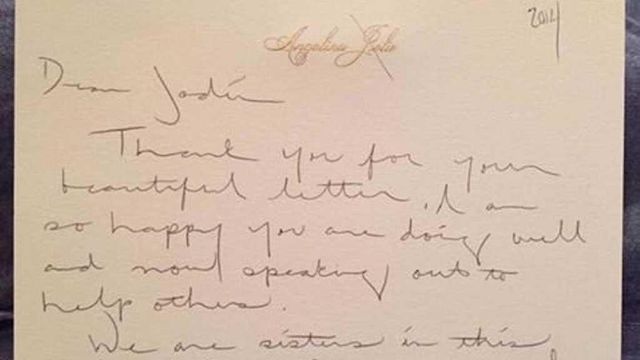 2014
Angelina Jolie
Dear
Thank you for your
beautiful letter. I am
so happy you are doing well
and now speaking out to
help others.
We are sisters in this